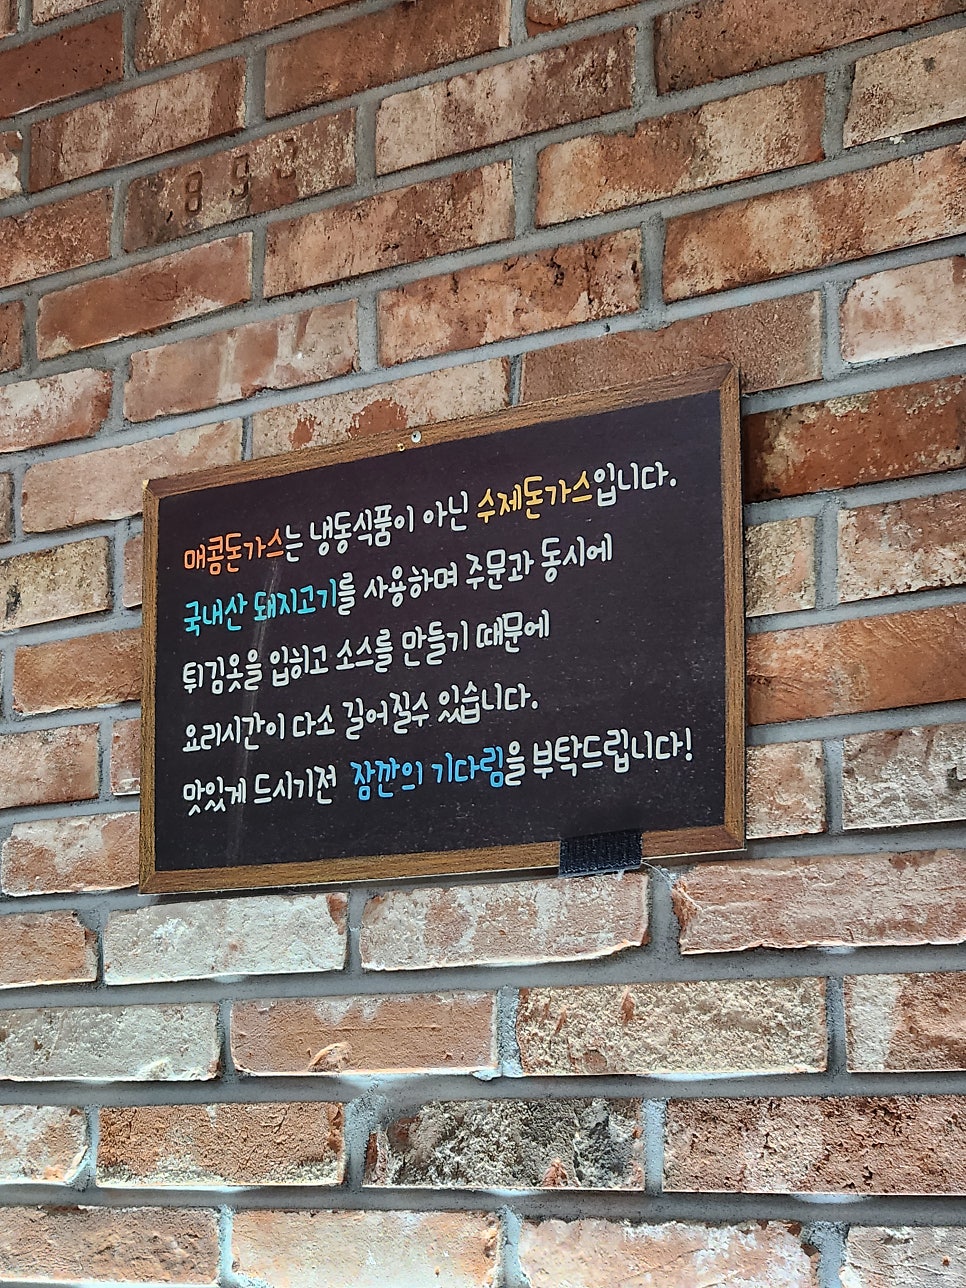 매콤돈가스는 냉동식품이 아닌 수제돈가스입니다.
국내산 돼지고기를 사용하며 주문과 동시에
튀김옷을 입히고 소스를 만들기 때문에
요리시간이 다소 길어질수 있습니다.
맛있게 드시기전 잠깐의 기다림을 부탁드립니다!